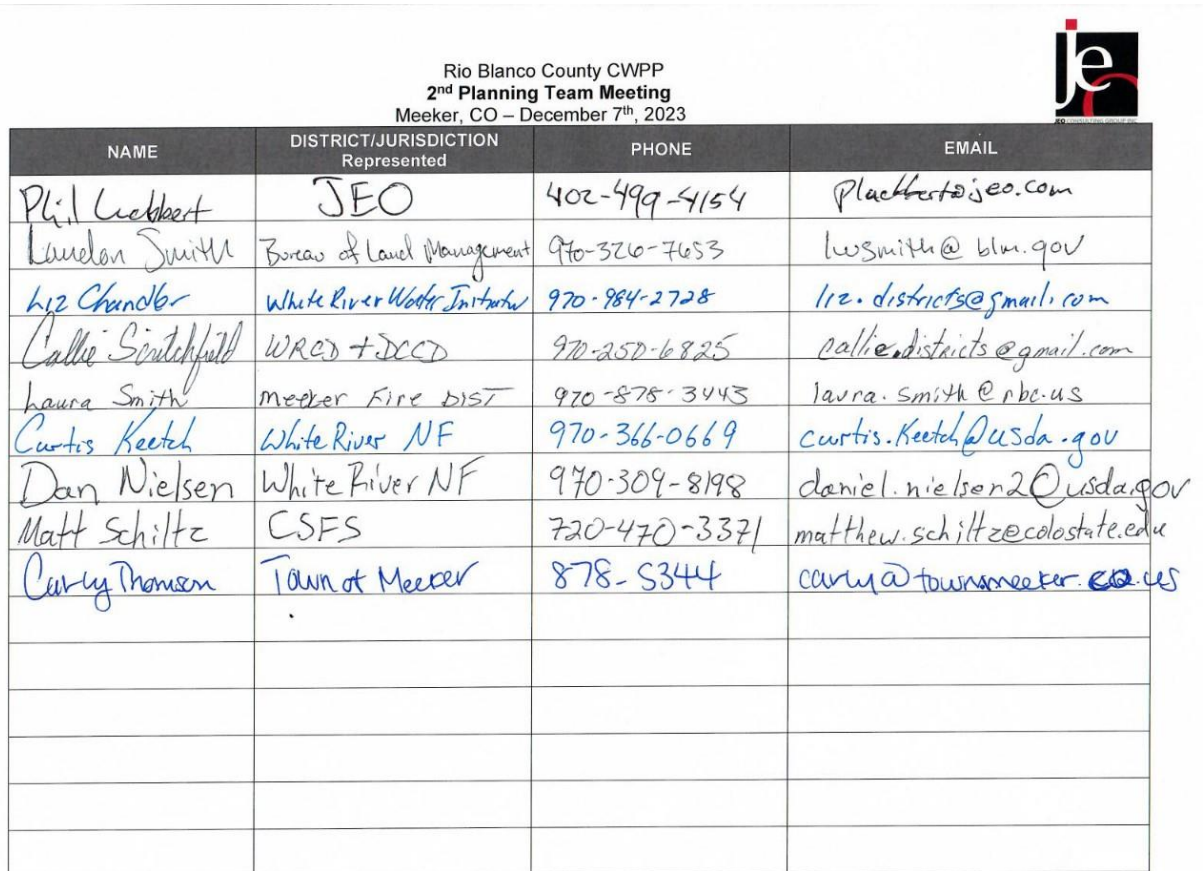 Rio Blanco County CWPP
2nd Planning Team Meeting
Meeker, CO – December 7th, 2023
jeo
JEO CONSULTING GROUP INC
NAME DISTRICT/JURISDICTION Represented PHONE EMAIL
Phil JEO 402-499-4154
Landon Smith Bureau of Land Management 970-326-7653 lwsmith@blm.gov
Liz Chandler White River Water 970-984-2728 liz.districts@gmail.com
Callie Scritchfield WRCD + DCCD 970-250-6825 callie.districts@gmail.com
Laura Smith Meeker Fire DIST 970-878-3443 laura.smith@rbc.us
Curtis Keetch White River NF 970-366-0669 curtis.keetch@usda.gov
Dan Nielsen White River NF 970-309-8198 daniel.nielsen2@usda.gov
Matt Schiltz CSFS 720-470-3371 matthew.schiltz@colostate.edu
Carly Thomson Town of Meeker 878-5344